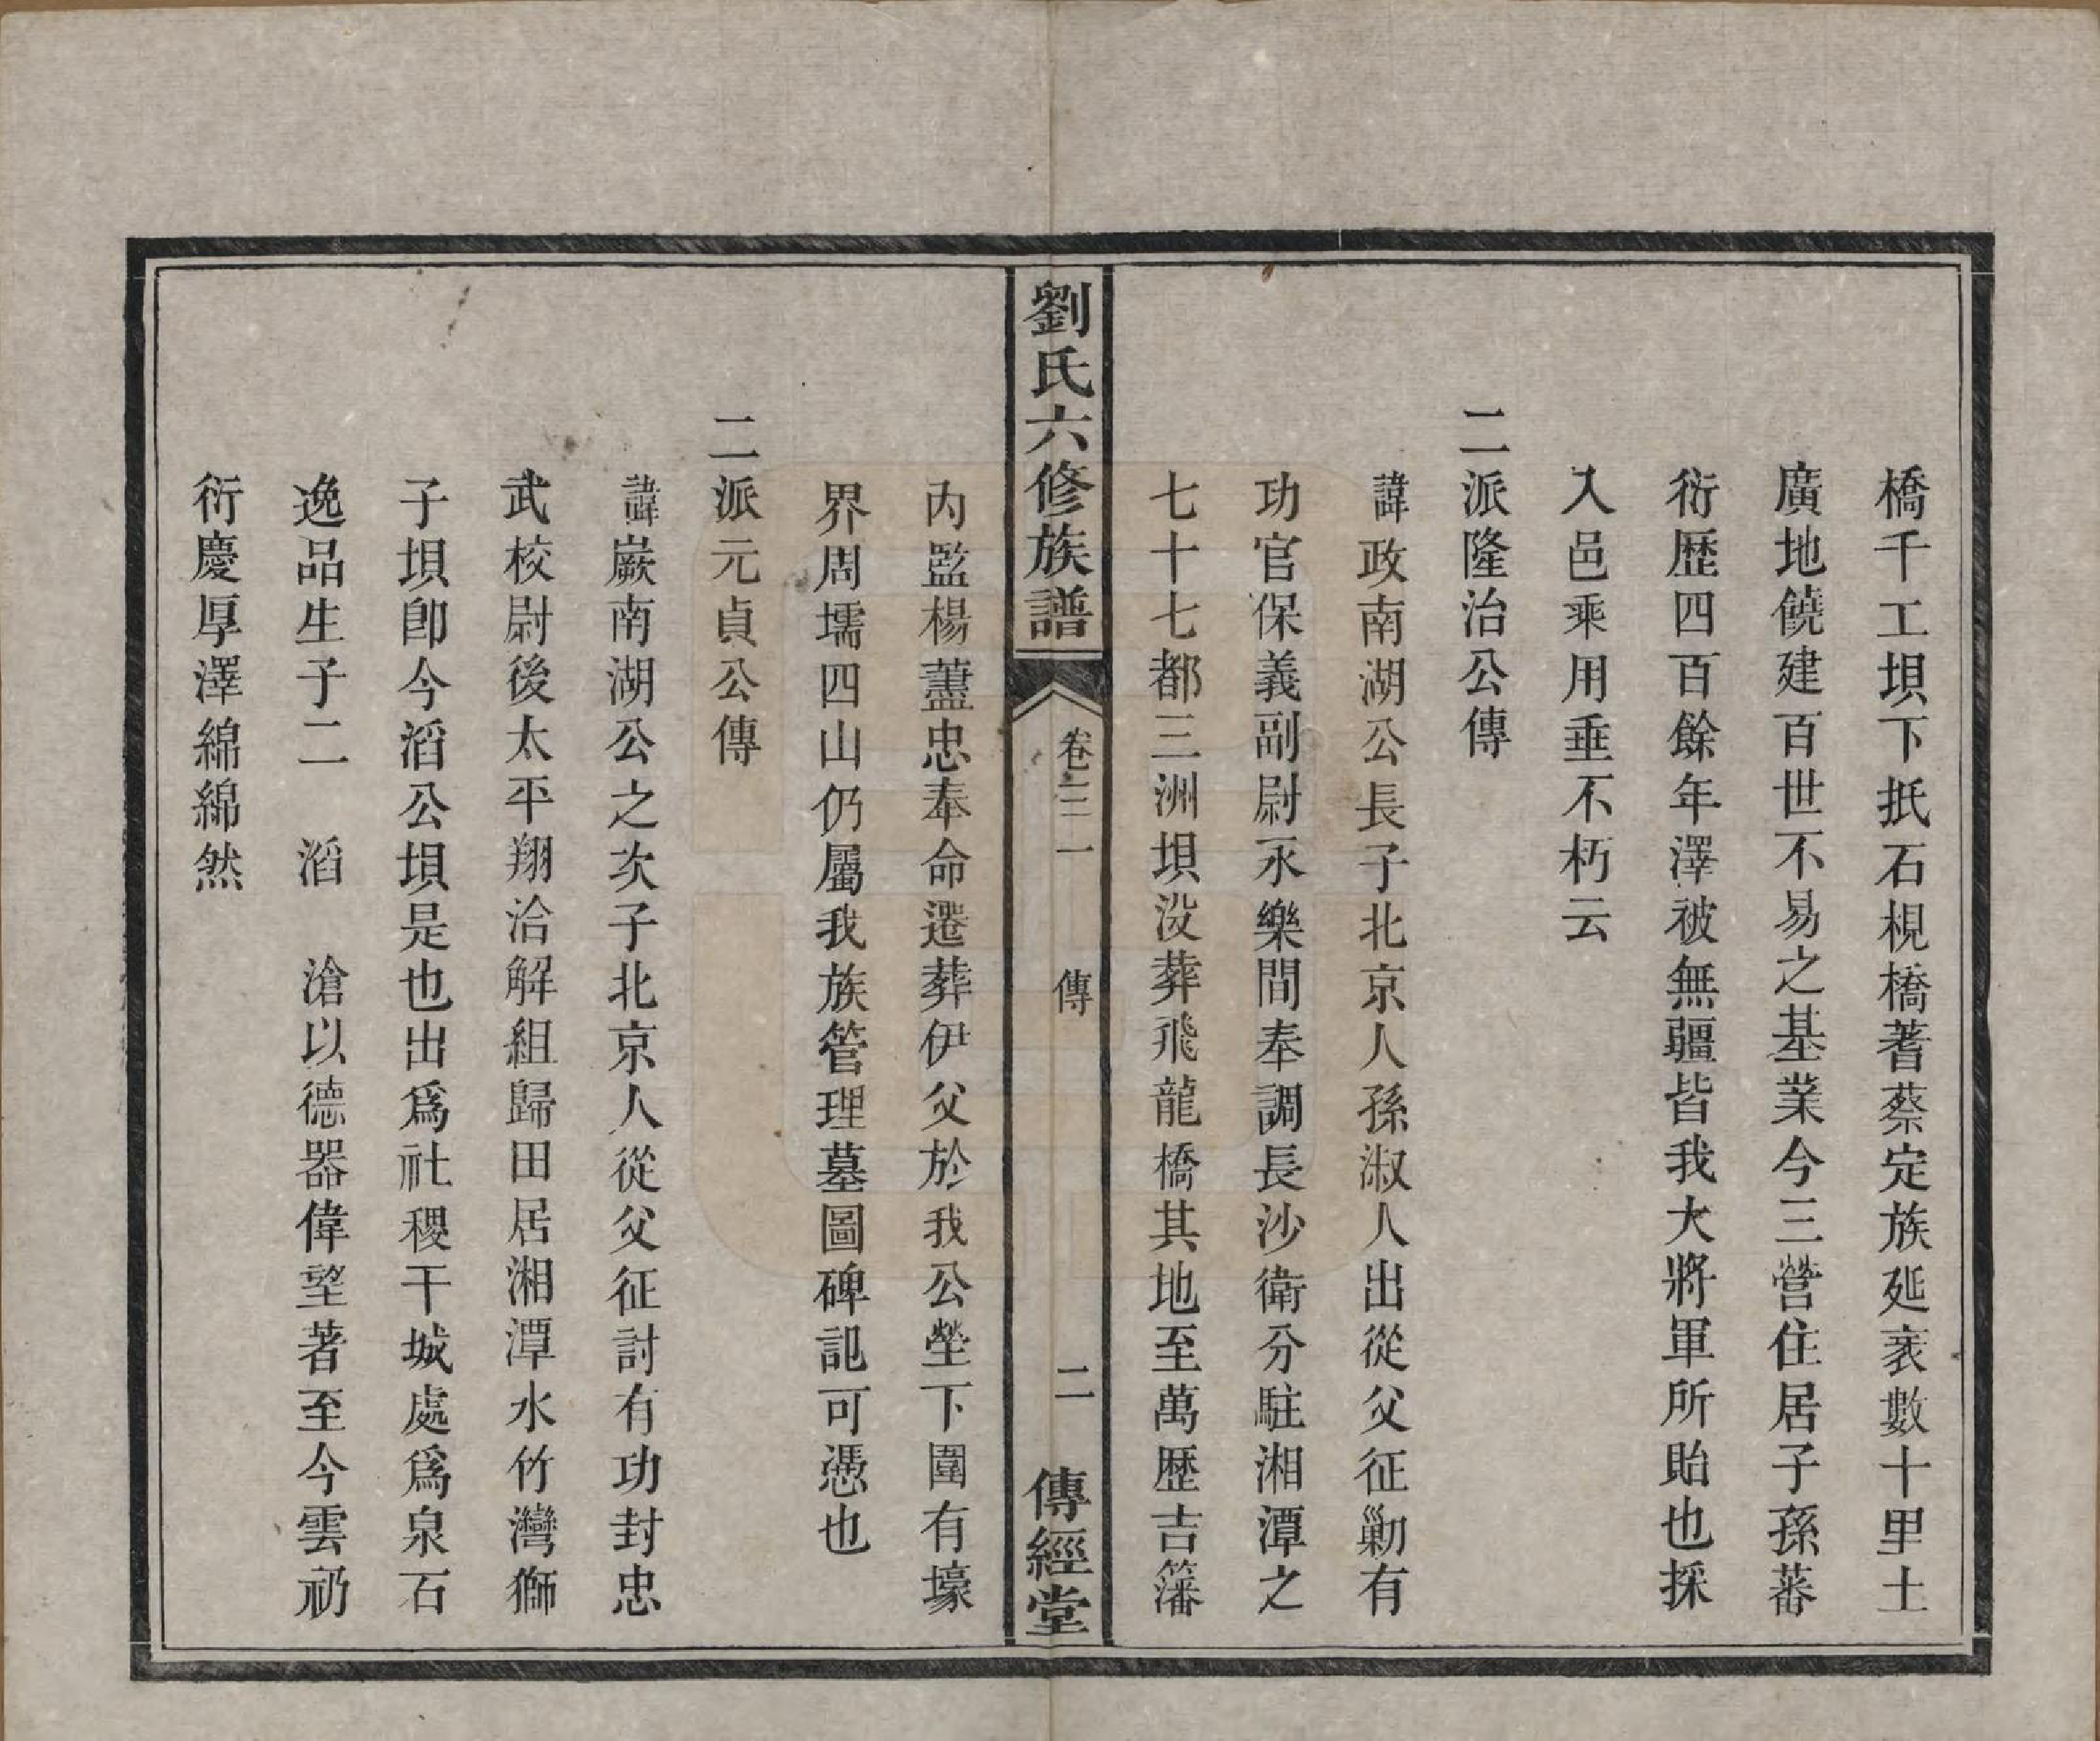 橋千工垻下抵石梘橋蓍蔡定族延袤數十里土
廣地饒建百世不易之基業今三營住居子孫蕃
衍歷四百餘年澤被無疆皆我大將軍所貽也採
入邑乘用垂不朽云
二派隆治公傳
諱政南湖公長子北京人孫淑人出從父征勦有
功官保義副尉永樂間奉調長沙衛分駐湘潭之
七十七都三洲垻没葬飛龍橋其地至萬歷吉籓
劉氏六修族譜 卷之三一 傳 二 傳經堂
內監楊藎忠奉命遷葬伊父於我公塋下圍有壕
界周壖四山仍屬我族管理墓圖碑記可憑也
二派元貞公傳
諱嶡南湖公之次子北京人從父征討有功封忠
武校尉後太平翔洽解組歸田居湘潭水竹灣獅
子垻卽今滔公垻是也出爲社稷干城處爲泉石
逸品生子二 滔 滄以德器偉望著至今雲礽
衍慶厚澤綿綿然